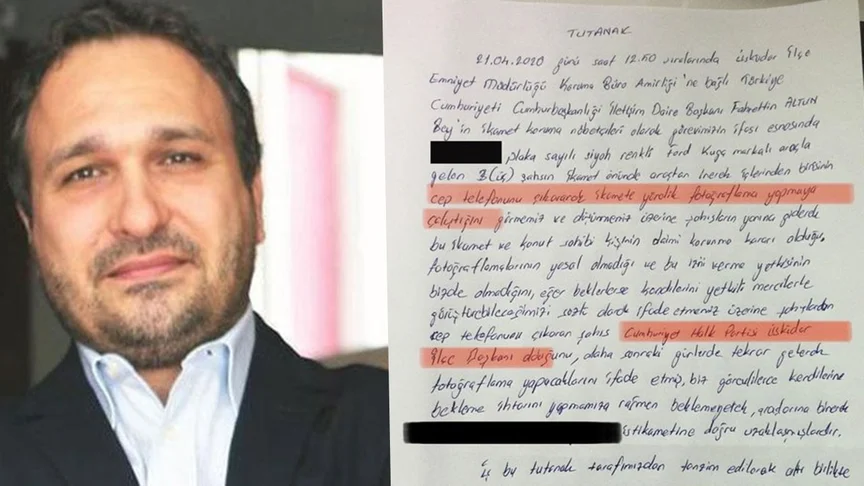 TUTANAK
21.04.2020 günü saat 12:50 sıralarında Üsküdar İlçe
Emniyet Müdürlüğü Koruma Büro Amirliği'ne bağlı Türkiye
Cumhuriyeti Cumhurbaşkanlığı İletişim Daire Başkanı Fahrettin ALTUN
Bey'in ikamet koruma nöbetçileri olarak görevimizin ifası esnasında
plaka sayılı siyah renkli Ford Kuga markalı araçla
gelen 3(üç) şahsın ikamet önünde araçtan inerek içlerinden birisinin
cep telefonunu çıkararak ikamete yönelik fotoğraflama yapmaya
çalıştığını görmemiz ve üzerine şahısların yanına giderek
bu ikamet ve konut sahibi kişinin daimi koruma kararı olduğu,
fotoğraflamalarının yasal olmadığı ve bu izni verme yetkisinin
bizde olmadığını, eğer beklerlerse kendilerini yetkili mercilerle
görüştürebileceğimizi sözlü olarak ifade etmemiz üzerine şahıslardan
cep telefonunu çıkaran şahıs Cumhuriyet Halk Partisi Üsküdar
İlçe Başkanı olduğunu, daha sonraki günlerde tekrar gelerek
fotoğraflama yapacaklarını ifade etmiş, biz görevlilerce kendilerine
bekleme ihtarını yapmamıza rağmen beklemeyerek, araçlarına binerek
istikametine doğru uzaklaşmışlardır.
İş bu tutanak tarafımızdan tanzim edilerek birlikte